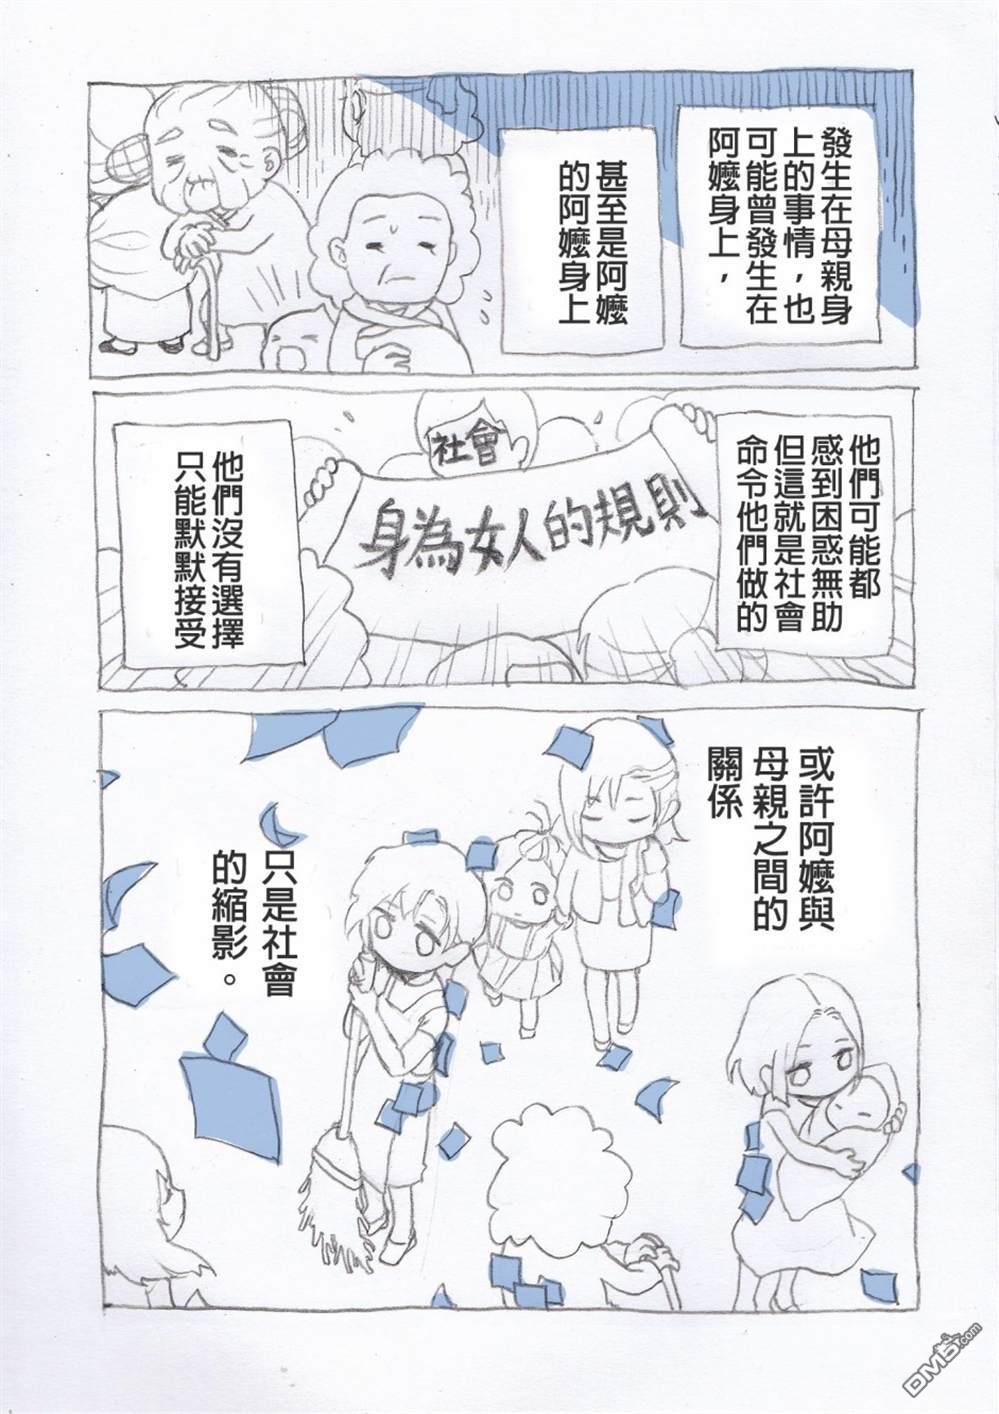 發生在母親身
上的事情，也
可能曾發生在
阿嬤身上，
甚至是阿嬤
的阿嬤身上
他們可能都
感到困惑無助
但這就是社會
命令他們做的
社會
身為女人的規則
他們沒有選擇
只能默默接受
或許阿嬤與
母親之間的
關係
只是社會
的縮影。
DM5.com